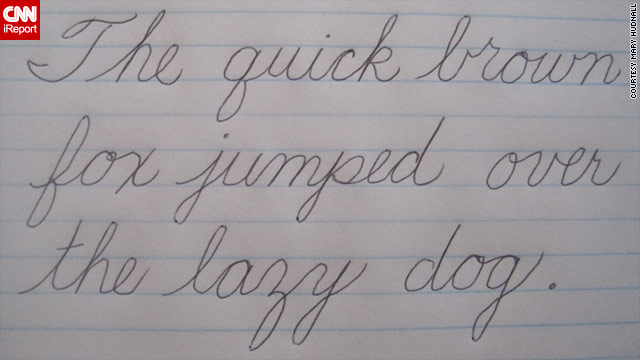 CNN
iReport
COURTESY MARY HUDNALL
The quick brown
fox jumped over
the lazy dog.